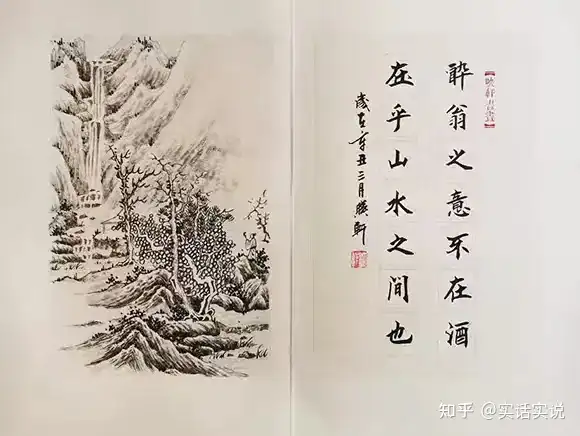 酔翁之意不在酒
在乎山水之间也
歲在辛丑三月暎軒
知乎 @实话实说